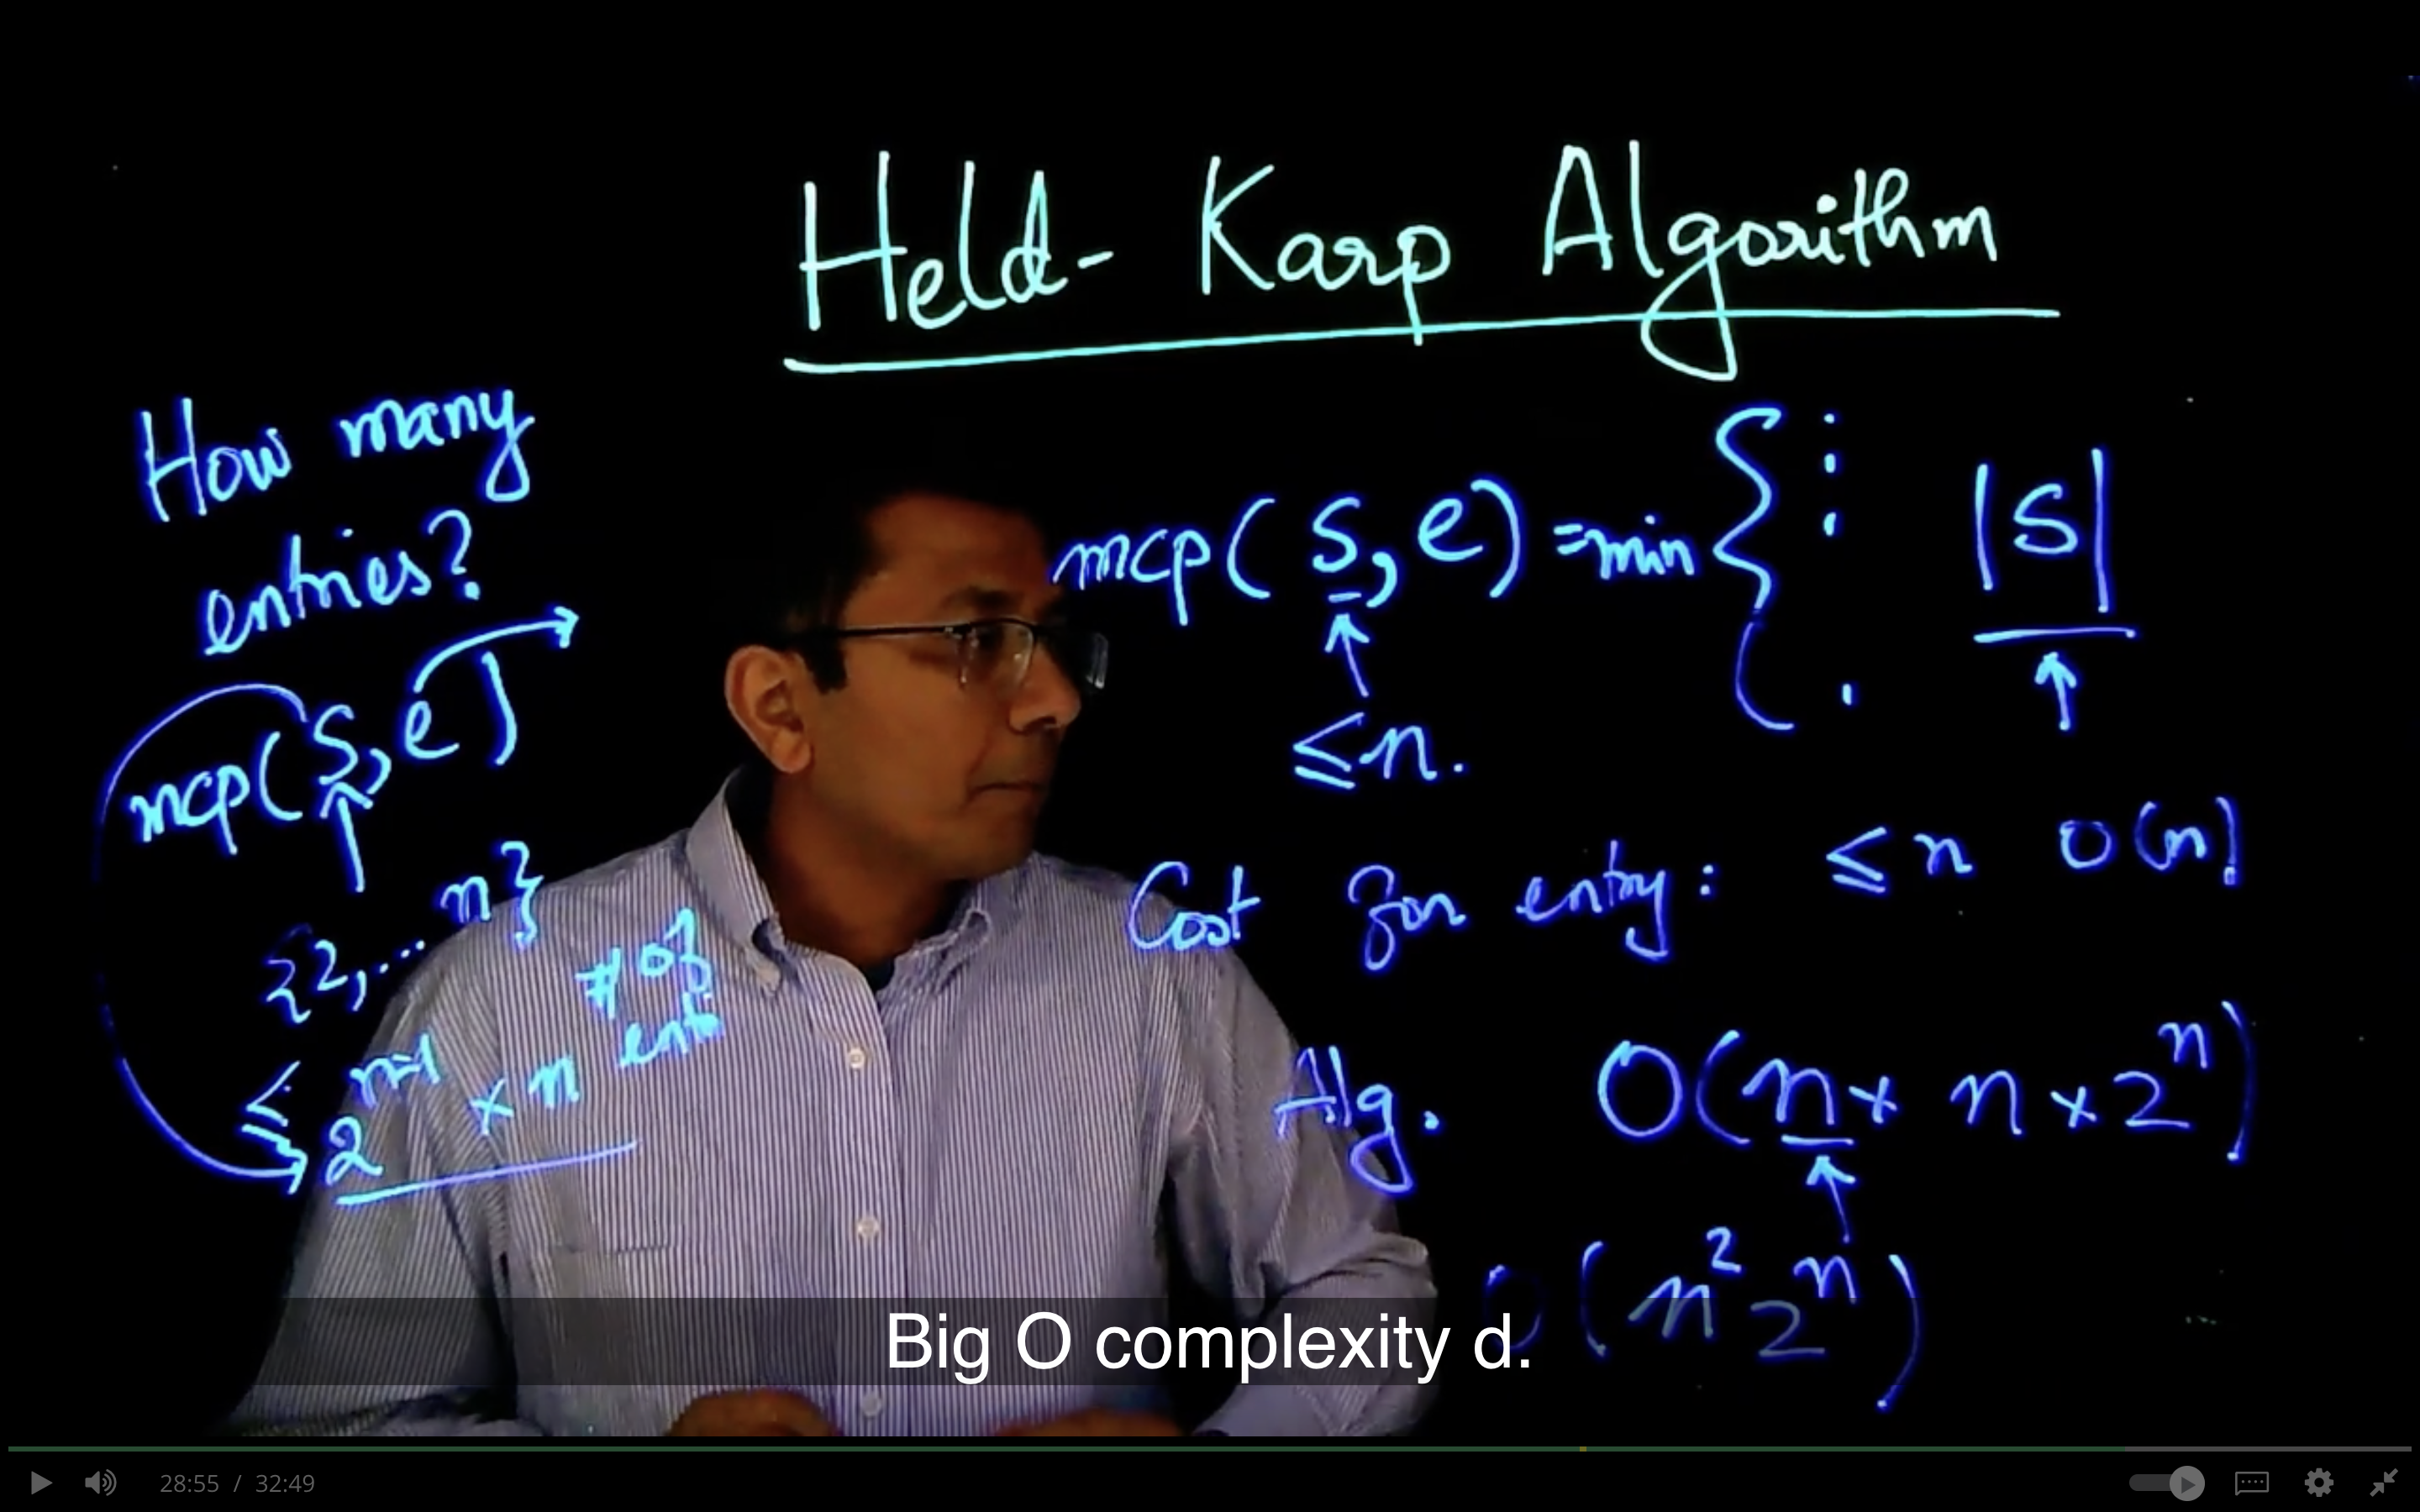 Held-Karp Algorithm
How many
entries?
mcp(S, e)
{2,... n}
≤ 2^{n-1} × n
# of
mcp(S, e) = min {
≤ n.
|S|
Cost for entry: ≤ n O(n)
Alg. O(n × n × 2^n)
O(n^2 2^n)
Big O complexity d.
28:55 / 32:49